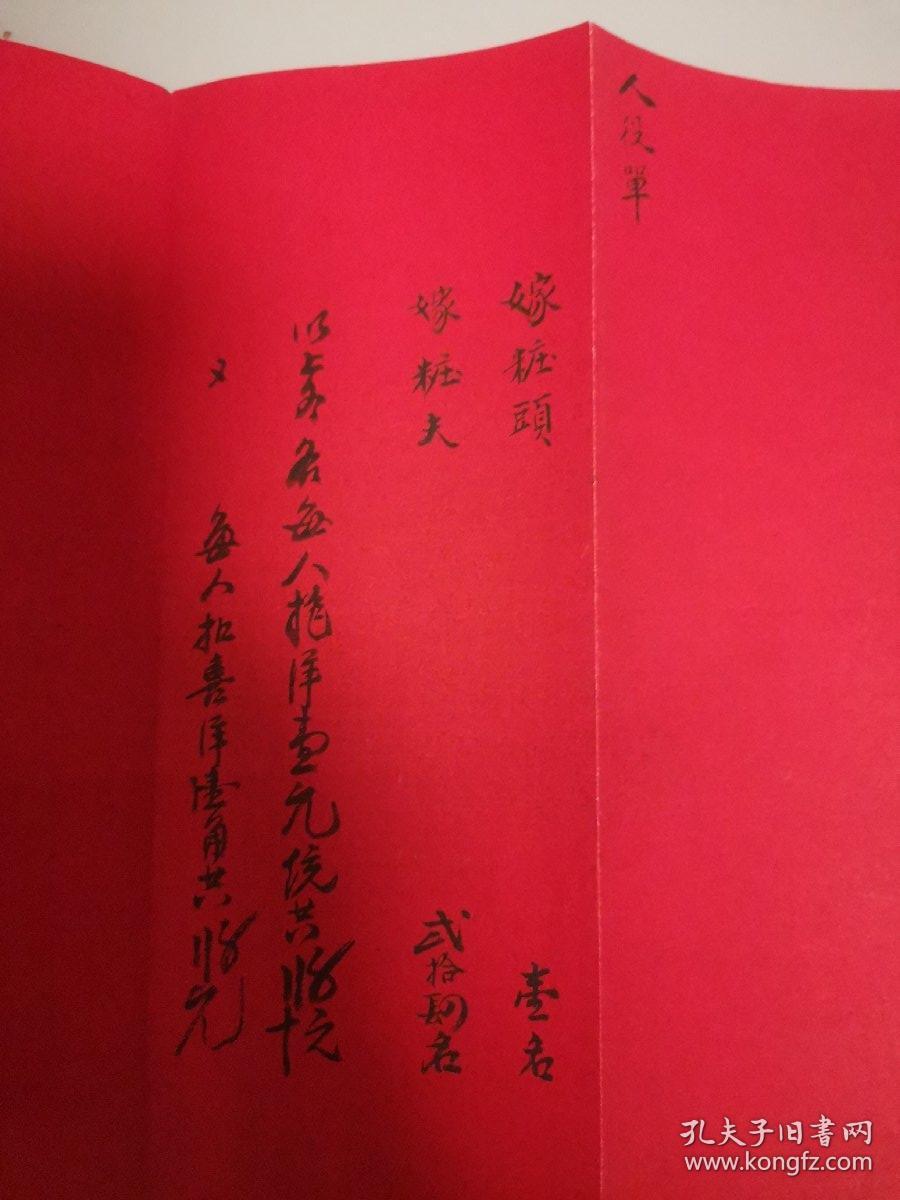 人役單
嫁粧頭 壹名
嫁粧夫 弍拾肆名
以上各名每人挑洋壹元統共十元
又 每人扣喜洋陸角共元
孔夫子旧书网
www.kongfz.com